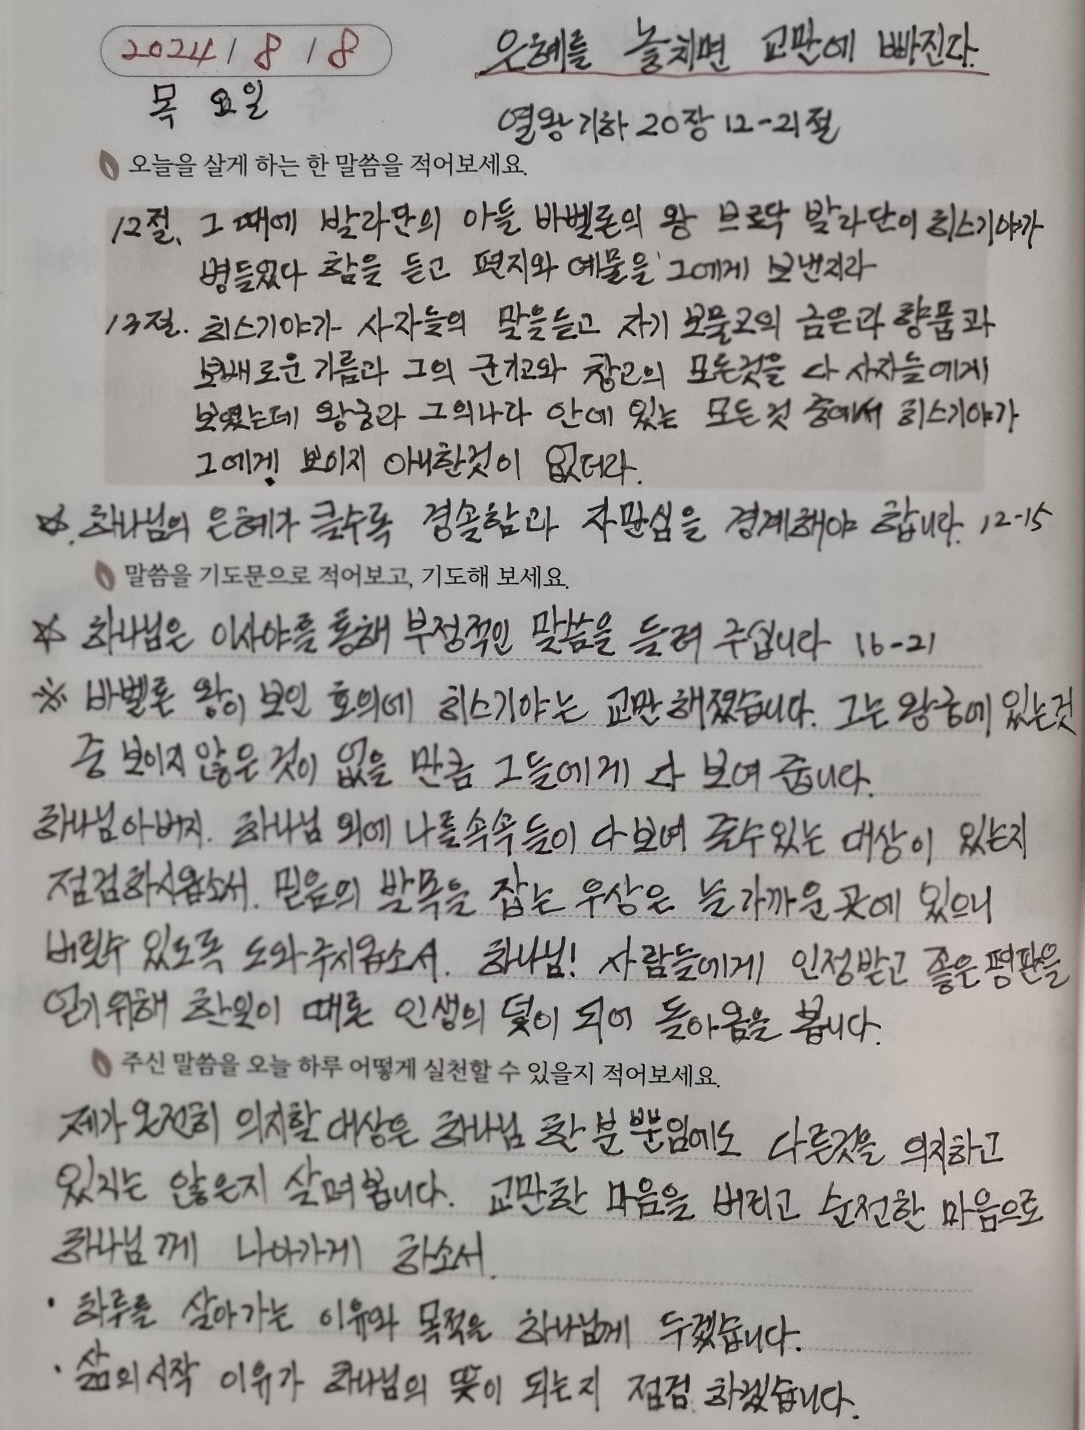 2024 / 8 / 8
은혜를 놓치면 교만에 빠진다.
목요일
열왕기하 20장 12-21절
오늘을 살게 하는 한 말씀을 적어보세요.
12절. 그 때에 발라단의 아들 바벨론의 왕 브로닥 발라단이 히스기야가
병들었다 함을 듣고 편지와 예물을 그에게 보낸지라
13절. 히스기야가 사자들의 말을듣고 자기 보물고의 금은과 향품과
보배로운 기름과 그의 군기고와 창고의 모든것을 다 사자들에게
보였는데 왕궁과 그의나라 안에 있는 모든것 중에서 히스기야가
그에게! 보이지 아니한것이 없더라.
☆. 하나님의 은혜가 클수록 경솔함과 자만심을 경계해야 합니다. 12-15
말씀을 기도문으로 적어보고, 기도해 보세요.
☆ 하나님은 이사야를 통해 부정적인 말씀을 들려 주십니다 16-21
※ 바벨론 왕이 보인 호의에 히스기야는 교만해졌습니다. 그는 왕궁에 있는것
중 보이지 않은 것이 없을 만큼 그들에게 다 보여 줍니다.
하나님아버지. 하나님 외에 나를속속들이 다보여 줄수있는 대상이 있는지
점검하시옵소서. 믿음의 발목을 잡는 우상은 늘 가까운 곳에 있으니
버릴수 있도록 도와주시옵소서. 하나님! 사람들에게 인정받고 좋은평판을
얻기위해 한일이 때론 인생의 덫이 되어 돌아옴을 봅니다.
주신 말씀을 오늘 하루 어떻게 실천할 수 있을지 적어보세요.
제가 온전히 의지할 대상은 하나님 한 분 뿐임에도 다른것을 의지하고
있지는 않은지 살펴봅니다. 교만한 마음을 버리고 순전한 마음으로
하나님께 나아가게 하소서.
· 하루를 살아가는 이유와 목적을 하나님께 두겠습니다.
· 삶의시작 이유가 하나님의 뜻이 되는지 점검 하겠습니다.